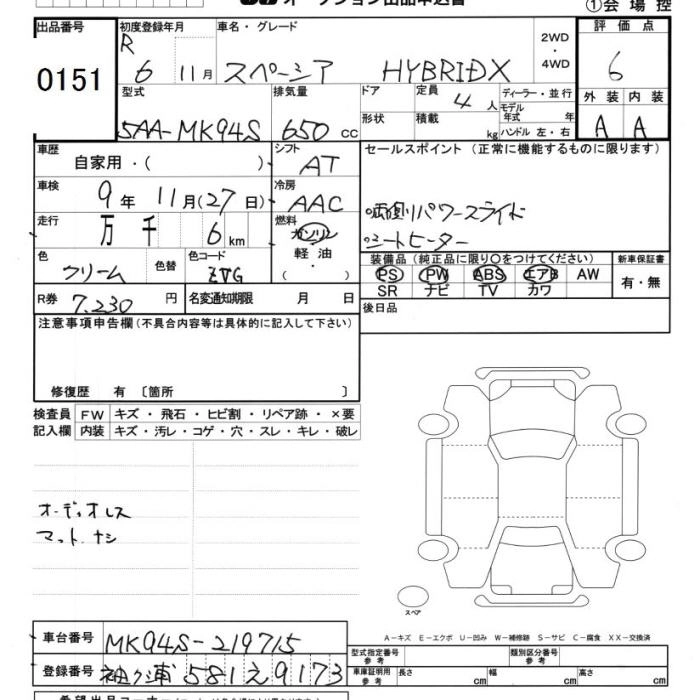 オークション出品申込書
①会場控
出品番号 初度登録年月 車名・グレード 2WD・4WD 評価点
0151 R 6 11月 スペーシア HYBRIDX 6
型式 排気量 ドア 定員 4人 ディーラー・並行 外装 内装
5AA-MK94S 650cc 形状 積載 kg モデル年式 年 A A
ハンドル 左・右
車歴 自家用・( ) シフト AT セールスポイント(正常に機能するものに限ります)
車検 9年 11月(27日) 冷房 AAC ・両側パワースライド
走行 万 千 6km 燃料 ガソリン ・シートヒーター
軽油・( )
色 クリーム 色替 色コード ZVG 装備品(純正品に限り〇をつけてください) 新車保証書
PS PW ABS エアB AW 有・無
SR ナビ TV カワ
R券 7,230円 名変通知期限 月 日 後日品
注意事項申告欄(不具合内容等は具体的に記入して下さい)
修復歴 有〔箇所 〕
検査員 FW キズ・飛石・ヒビ割・リペア跡・×要
記入欄 内装 キズ・汚レ・コゲ・穴・スレ・キレ・破レ
オーディオレス
マットナシ
スペア
A-キズ E-エクボ U-凹み W-補修跡 S-サビ C-腐食 XX-交換済
車台番号 MK94S-219715 型式指定番号 参考 類別区分番号 参考
登録番号 袖ヶ浦 581 え 9173 車庫証明用 参考 長さ cm 幅 cm 高さ cm